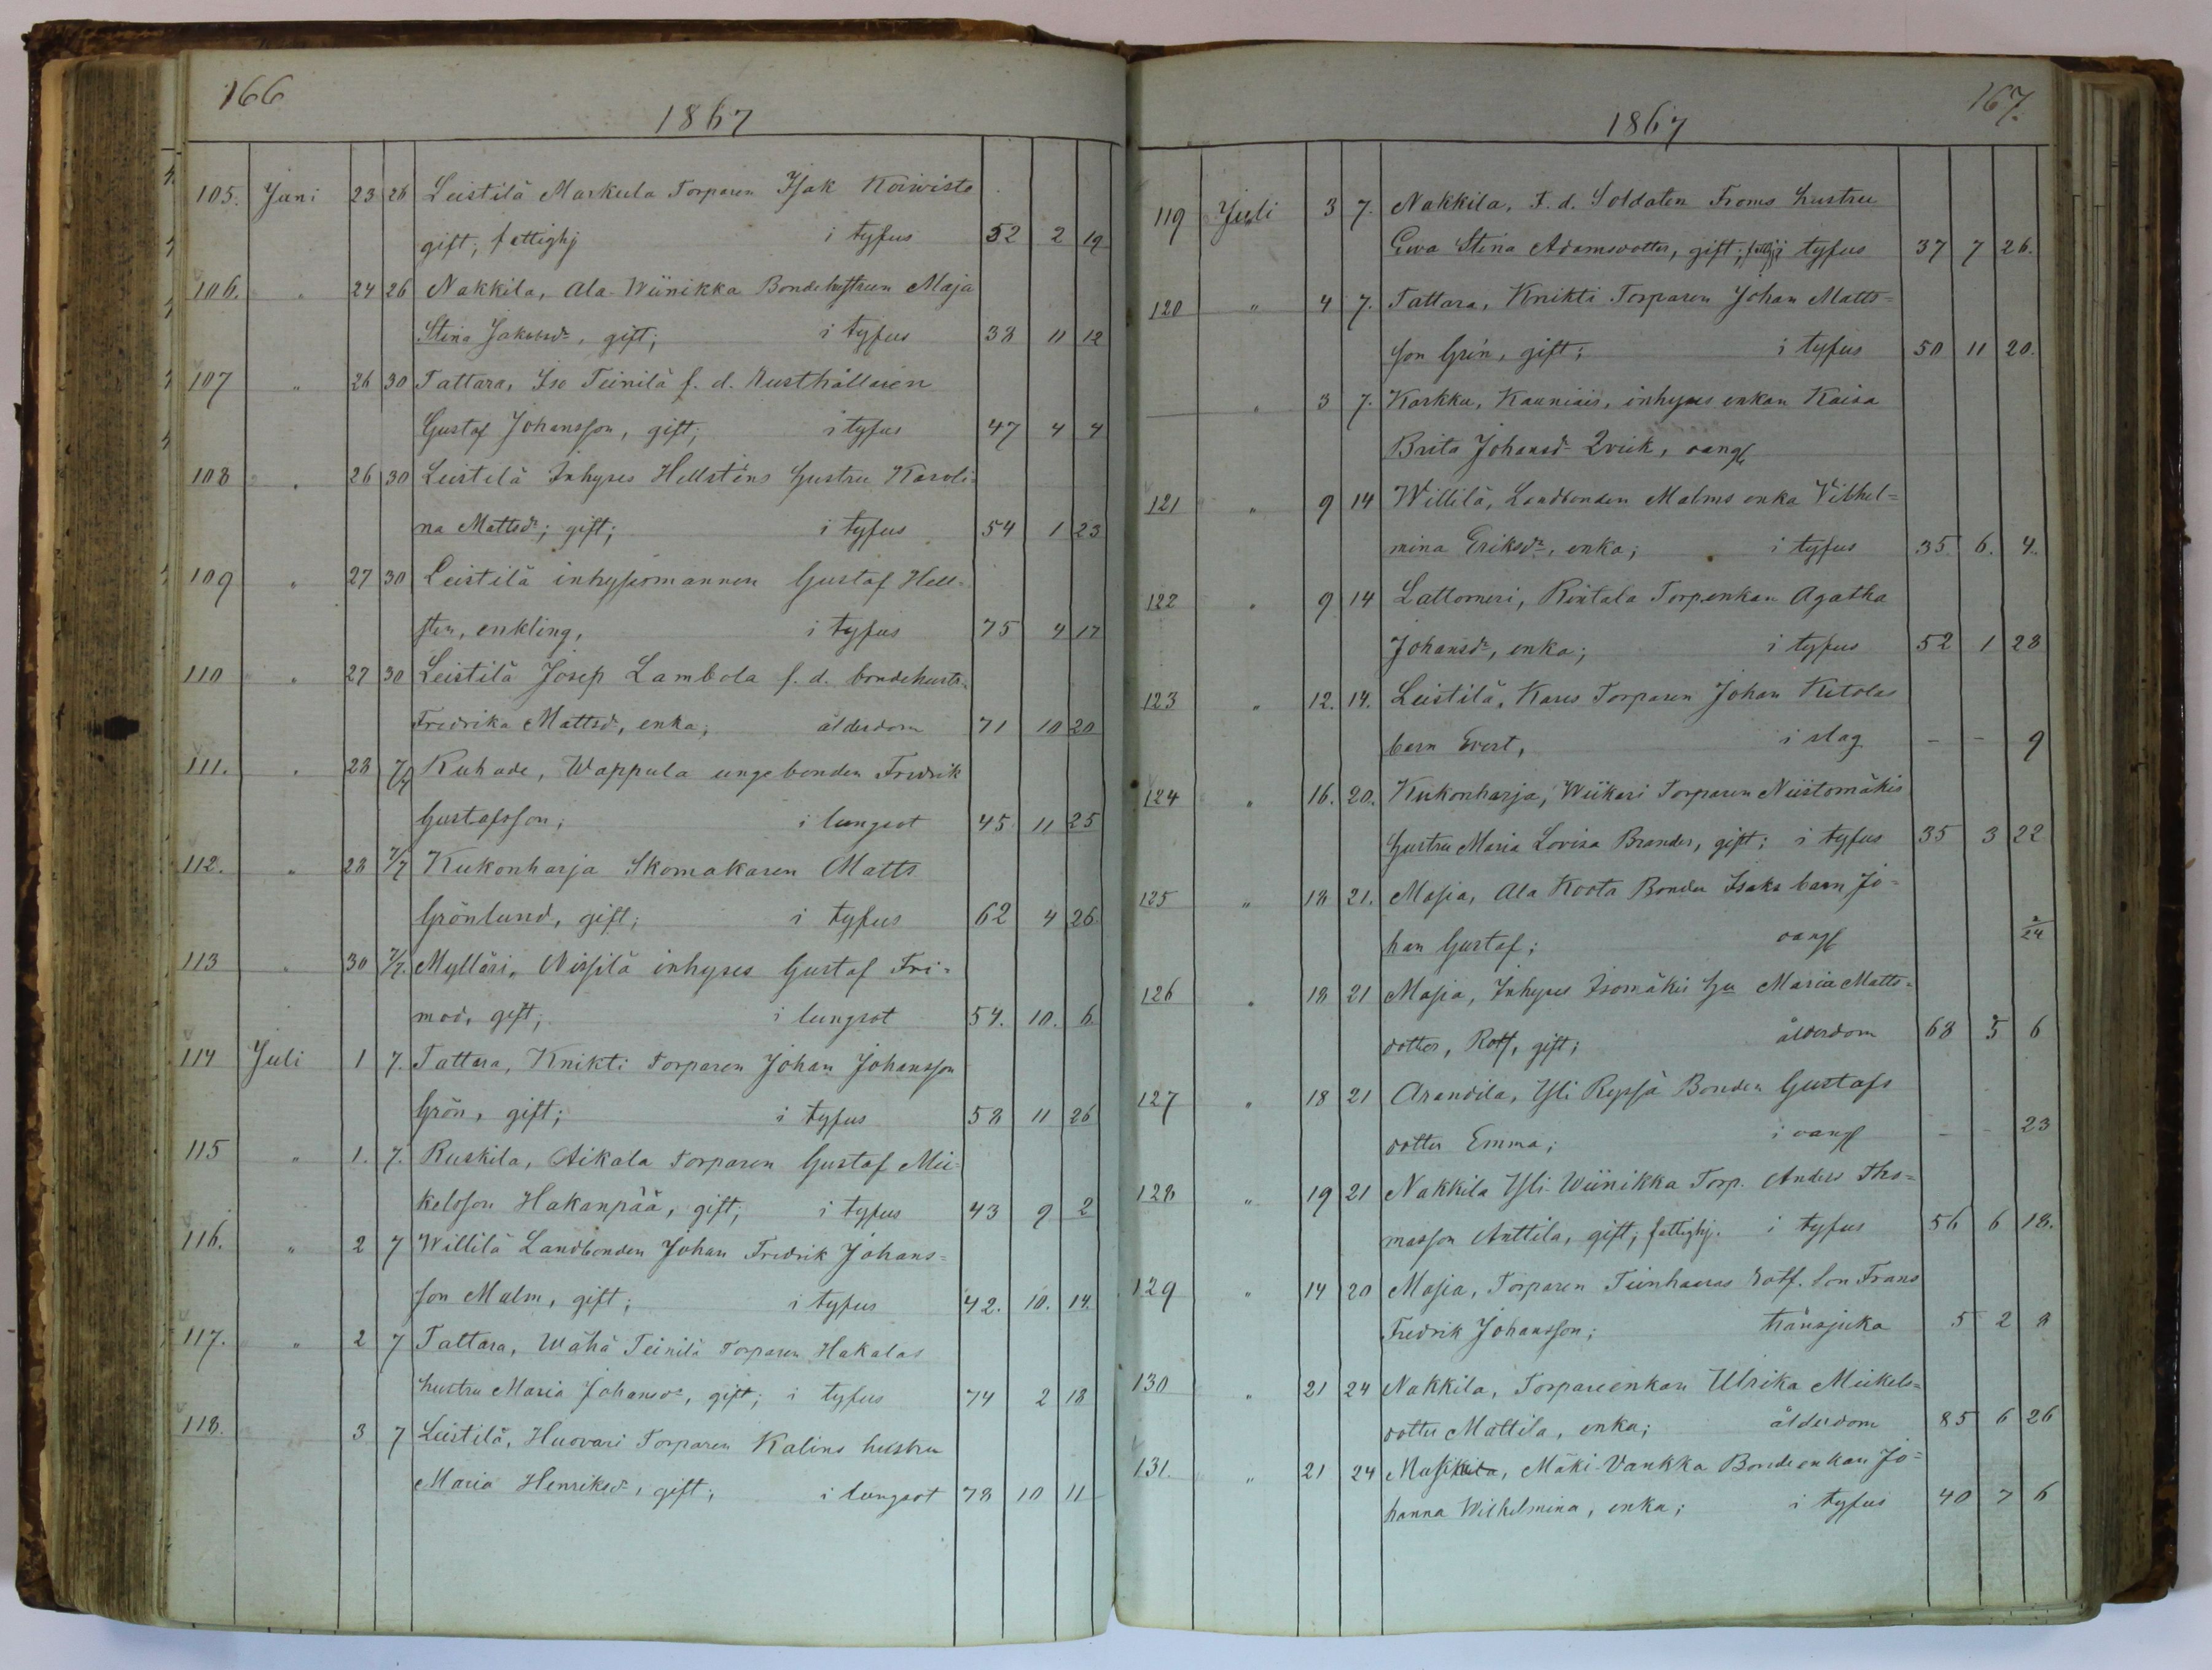 166
1867
105. Juni 23 26 Leistilä Markula Torparen Isak Koivisto
gift, fattighj i tyfus 52 2 19
106. " 24 26 Nakkila, Ala-Wiinikka Bondehustrun Maja
Stina Jakobsdr, gift; i tyfus 38 11 12
107 " 26 30 Tattara, Iso Teinilä f. d. Rusthållaren
Gustaf Johansson, gift; i tyfus 47 4 4
108 " 26 30 Leistilä Inhyses Hellsténs Hustru Karoli-
na Mattsdr; gift; i tyfus 54 1 23
109 " 27 30 Leistilä inhysomannen Gustaf Hell-
sten, enkling, i tyfus 75 4 17
110 " 27 30 Leistilä Josep Lambola f. d. bondehustr.
Fredrika Mattsdr, enka; ålderdom 71 10 20
111. " 28 7/7 Ruhade, Wappula unge bonden Fredrik
Gustafsson; i lungsot 45 11 25
112. " 28 7/7 Kukonharja Skomakaren Matts
Grönlund, gift; i tyfus 62 4 26
113 " 30 7/7. Mylläri, Nissilä inhyses Gustaf Fri-
mod, gift; i lungsot 54. 10. 6.
114 Juli 1 7. Tattara, Knikti Torparen Johan Johansson
Grön, gift; i tyfus 58 11 26
115 " 1. 7. Ruskila, Aikala Torparen Gustaf Mi-
kelsson Hakanpää, gift; i tyfus 43 9 2
116. " 2 7 Willilä Landbonden Johan Fredrik Johans-
son Malm, gift; i tyfus 42. 10. 14.
117. " 2 7 Tattara, Wähä Teinilä Torparen Hakalas
hustru Maria Johansdr, gift; i tyfus 74 2 18
118. 3 7 Leistilä, Huovari Torparen Kalins hustru
Maria Henriksdr, gift; i lungsot 78 10 11
167.
1867
119 Juli 3 7. Nakkila, F. d. Soldaten Froms hustru
Ewa Stina Adamsdotter, gift; fattighj i tyfus 37 7 26.
120 " 4 7. Tattara, Knikti Torparen Johan Matts-
son Grön, gift; i tyfus 50 11 20.
" 3 7. Karkku, Kauniais, inhyses enkan Kaisa
Brita Johansdr Qvick, oangf
121 " 9 14 Willilä, Landbonden Malms enka Vilhel-
mina Eriksdr, enka; i tyfus 35. 6. 4.
122 " 9 14 Lattomeri, Rintala Torpenkan Agatha
Johansdr, enka; i tyfus 52 1 28
123 " 12. 14. Leistilä, Kares Torparen Johan Kitolas
barn Evert, i slag - - 9
124 " 16. 20. Kukonharja, Wiikari Torparen Niistomäkis
Hustru Maria Lovisa Brander, gift; i tyfus 35 3 22
125 " 18 21. Masia, Ala Koota Bonden Isaks barn Jo-
han Gustaf; oangf 2/24
126 " 18 21 Masia, Inhyses Isomäkis Hu Maria Matts-
dotter, Rotf, gift; ålderdom 68 5 6
127 " 18 21 Arandila, Yli Ryssä Bonden Gustafs
dotter Emma; i oangf - - 23
128 " 19 21 Nakkila Yli-Wiinikka Torp. Anders Tho-
masson Anttila, gift, fattighj. i tyfus 56 6 18.
129 " 14 20 Masia, Torparen Tiinhaaras Rotf. Son Frans
Fredrik Johansson; tränsjuka 5 2 8
130 " 21 24 Nakkila, Torpareenkan Ulrika Mickels-
dotter Mattila, enka; ålderdom 85 6 26
131. " 21 24 Mäki-Vankka Bondeenkan Jo-
hanna Wilhelmina, enka; i tyfus 40 7 6